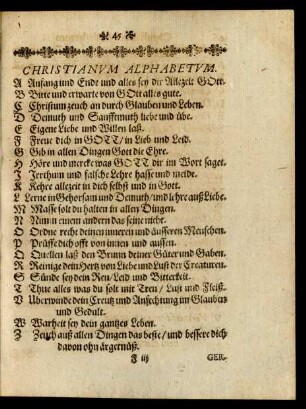 45
CHRISTIANVM ALPHABETVM.
A Anfang und Ende und alles sey dir Allezeit GOtt.
V Bitte und erwarte von GOtt alles gute.
C Christum zeuch an durch Glauben und Leben.
D Demuth und Sanfftmuth liebe und übe.
E Eigene Liebe und Willen laß.
F Freue dich in GOTT/ in Lieb und Leid.
G Gib in allen Dingen Gott die Ehre.
H Höre und mercke was GOTT dir im Wort saget.
I Irrthum und falsche Lehre hasse und meide.
K Kehre allezeit in dich selbst und in Gott.
L Lerne in Gehorsam und Demuth/ und lehre auß Liebe.
M Masse solt du halten in allen Dingen.
N Nim in einem andern das seine nicht.
O Ordne recht deinen inneren und äusseren Menschen.
P Prüffe dich offt von innen und aussen.
Q Quellen laß den Brunn deiner Güter und Gaben.
R Reinige dein Hertz von Liebe und Lust der Creaturen.
S Sünde sey dein Reu/ Leid und Bitterkeit.
T Thue alles was du solt mit Treu/ Lust und Fleiß.
V Uberwinde dein Creutz und Anfechtung im Glauben
und Gedult.
W Warheit sey dein gantzes Leben.
Z Zeuch auß allen Dingen das beste/ und bessere dich
davon ohn ärgernüß.
F iij GER-